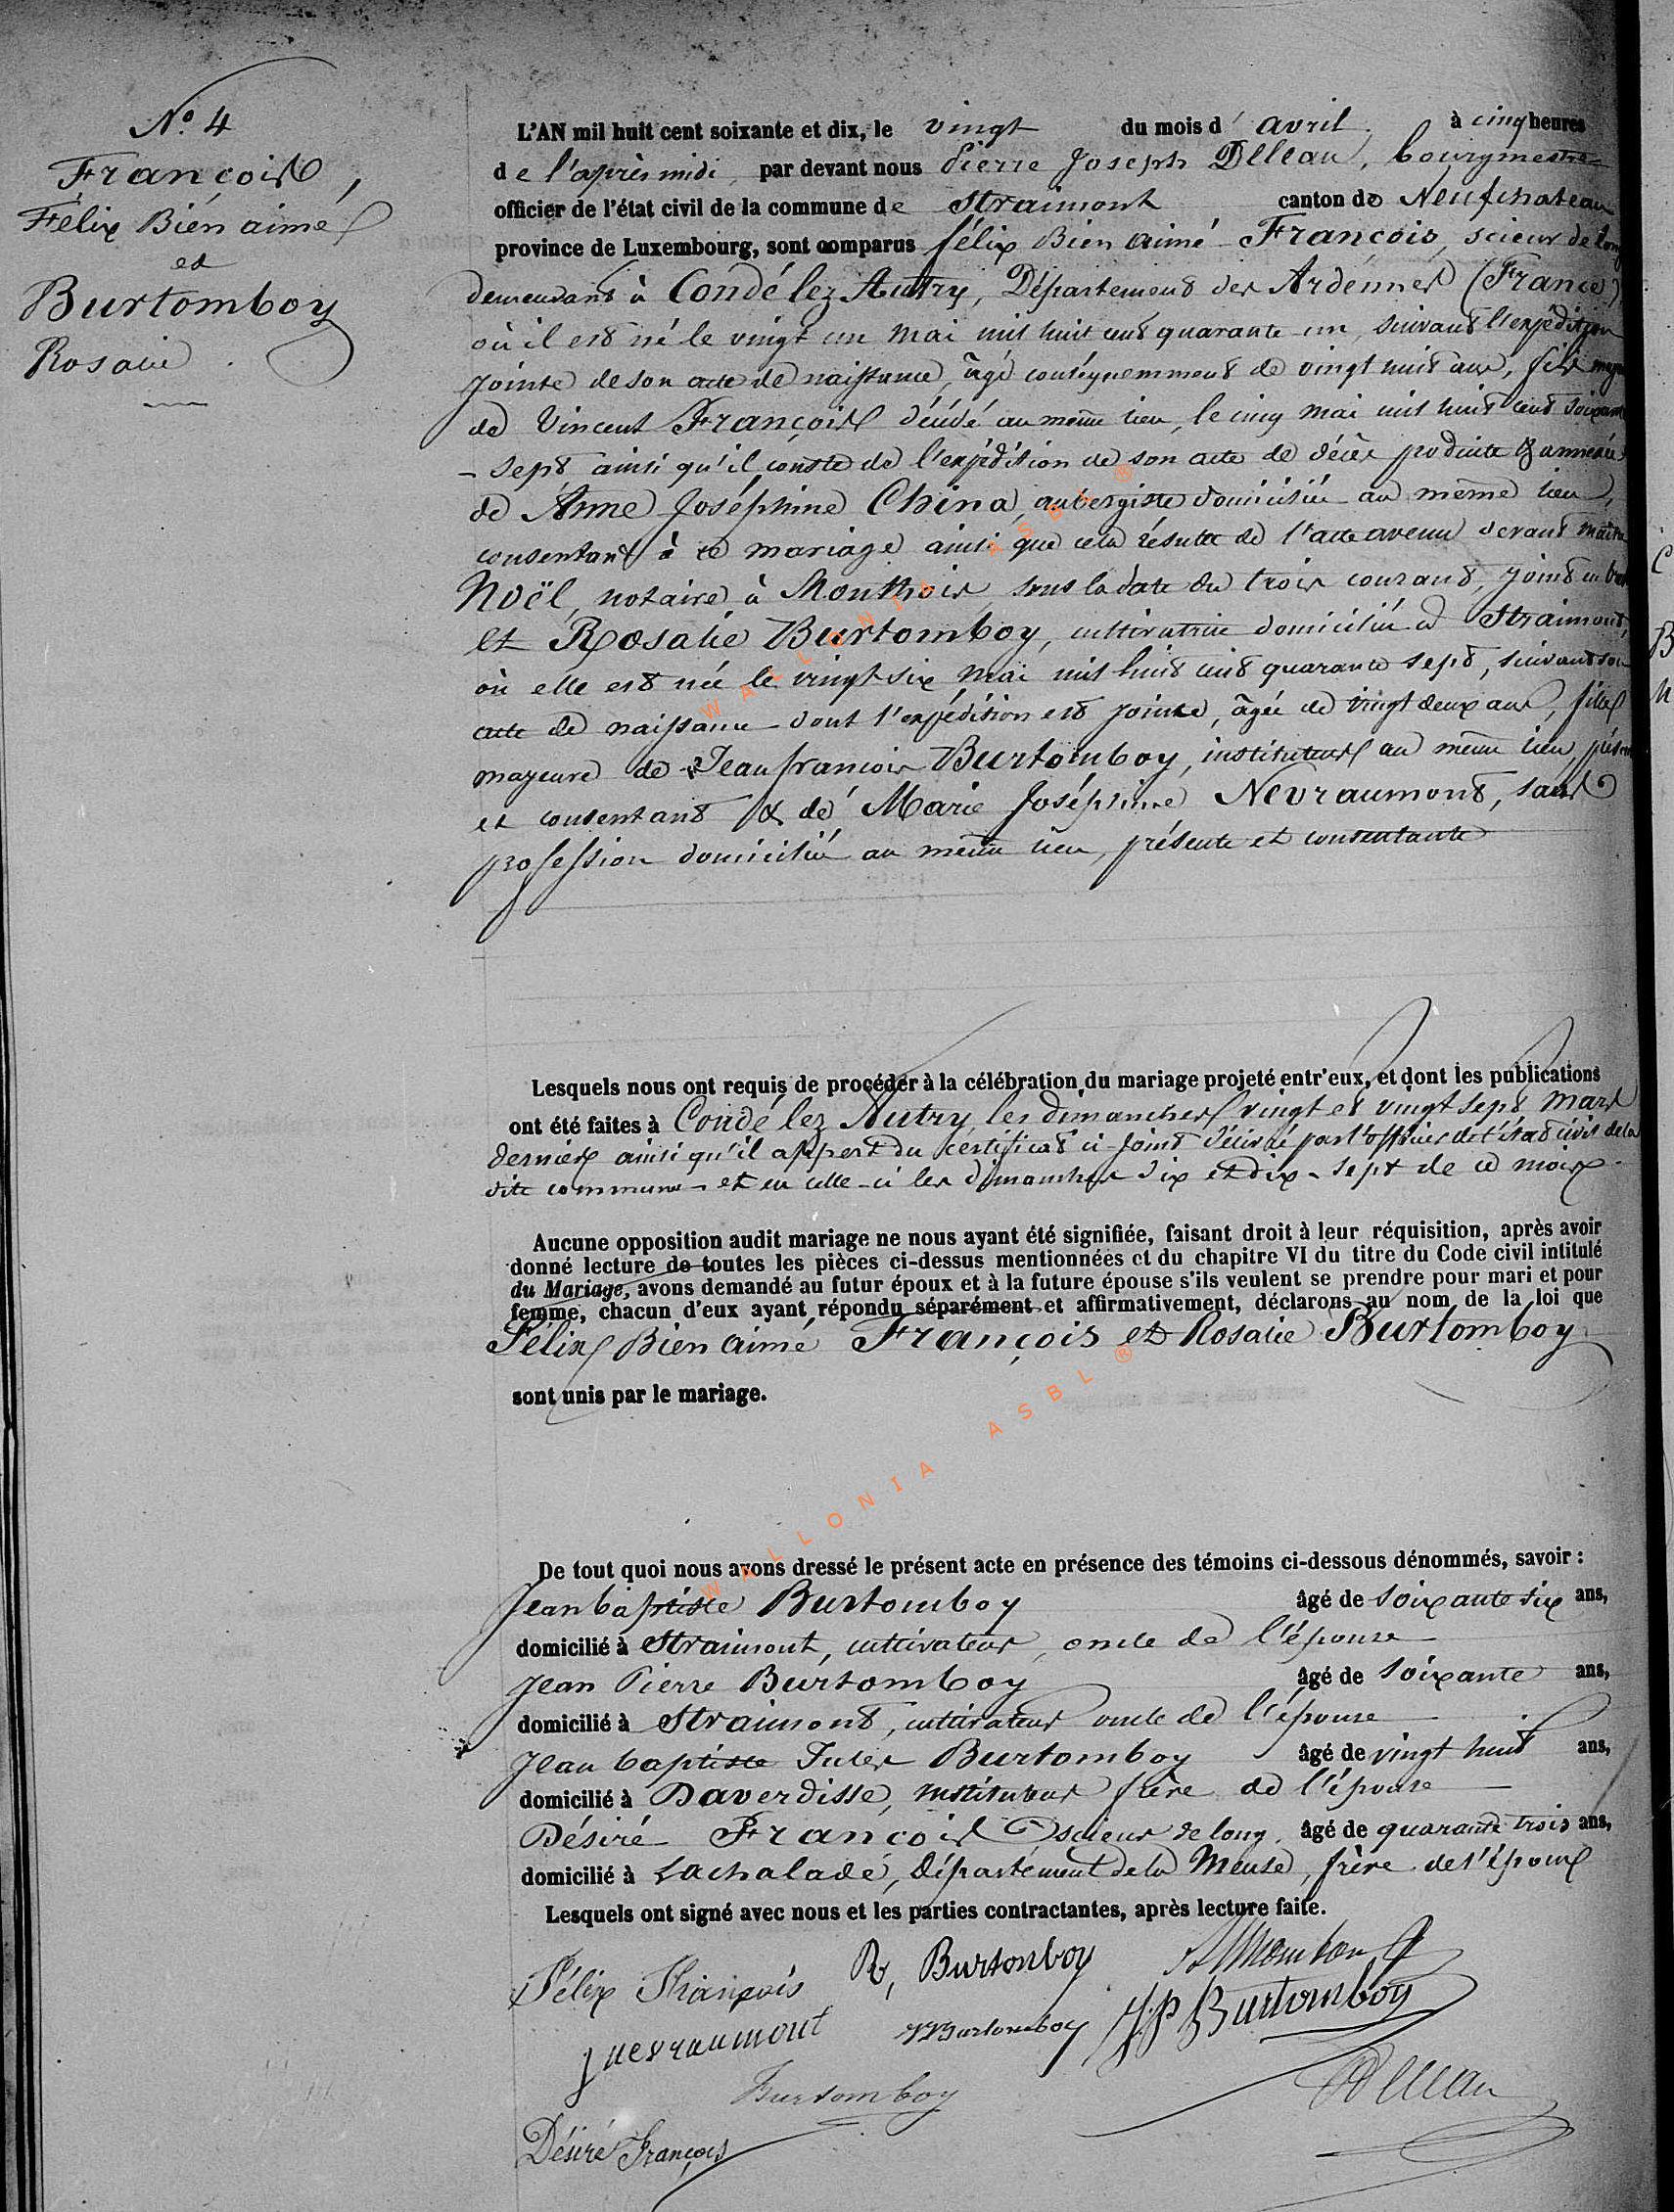 N.° 4
François,
Félix Bien aimé
et
Burtomboy
Rosalie.
L'AN mil huit cent soixante et dix, le vingt du mois d' avril. à cinq heures
de l'après midi, par devant nous Pierre Joseph Delleau, bourgmestre
officier de l'état civil de la commune de Straimont canton de Neufchateau
province de Luxembourg, sont comparus félix Bien aimé François, scieur de long
demeurant à Condé lez Autry, Département des Ardennes (France)
où il est né le vingt un mai mil huit cent quarante un, suivant l'expédition
jointe de son acte de naissance, âgé conséquemment de vingt huit ans, fils majeur
de Vincent François décédé au même lieu, le cinq mai mil huit cent soixante
- sept ainsi qu'il conste de l'expédition de son acte de décès produite & annexée
de Anne Joséphine China, aubergiste domiciliée au même lieu,
consentant à ce mariage ainsi que cela résulte de l'acte avenu devant maître
Noël, notaire à Monthois, sous la date du trois courant, joint en
et Rosalie Burtomboy, cultivatrice domiciliée à Straimont,
où elle est née le vingt-six mai mil huit cent quarante sept, suivant son
acte de naissance dont l'expédition est jointe, âgée de vingt deux ans, fille
majeure de Jean françois Burtomboy, instituteur au même lieu, présent
et consentant & de Marie Joséphine Nevraumont, sans
profession domiciliée au même lieu, présente et consentante
Lesquels nous ont requis de procéder à la célébration du mariage projeté entr'eux, et dont les publications
ont été faites à Condé lez Autry, les dimanches vingt et vingt sept Mars
dernier ainsi qu'il appert du certificat ci-joint délivré par l'officier de l'état civil de la
dite commune - et en celle-ci les dimanches dix et dix-sept de ce mois.
Aucune opposition audit mariage ne nous ayant été signifiée, faisant droit à leur réquisition, après avoir
donné lecture de toutes les pièces ci-dessus mentionnées et du chapitre VI du titre du Code civil intitulé
du Mariage, avons demandé au futur époux et à la future épouse s'ils veulent se prendre pour mari et pour
femme, chacun d'eux ayant répondu séparément et affirmativement, déclarons au nom de la loi que
Félix Bien aimé François et Rosalie Burtomboy
sont unis par le mariage.
De tout quoi nous avons dressé le présent acte en présence des témoins ci-dessous dénommés, savoir :
Jean baptiste Burtomboy âgé de soixante six ans,
domicilié à Straimont, cultivateur, oncle de l'épouse
Jean Pierre Burtomboy âgé de soixante ans,
domicilié à Straimont, cultivateur oncle de l'épouse
Jean baptiste Jules Burtomboy âgé de vingt huit ans,
domicilié à Daverdisse, instituteur frère de l'épouse
Désiré François scieur de long. âgé de quarante trois ans,
domicilié à Lachalade, Département de la Meuse, frère de l'époux
Lesquels ont signé avec nous et les parties contractantes, après lecture faite.
Félix François R, Burtonboy
J Nevraumont Burtomboy J.P Burtomboy
Burtomboy Delleau
Désiré François
WALLONIA ASBL ®
WALLONIA ASBL ®